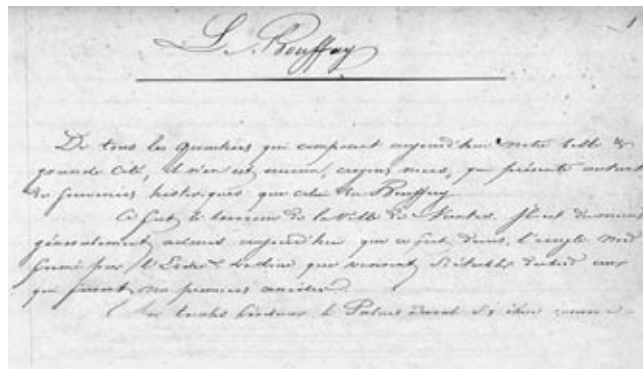 Le Bouffay
De tous les quartiers qui composent aujourd'hui notre belle &
grande Cité, il n'en est aucun, croyons nous, qui présente autant
de souvenirs historiques que celui du Bouffay.
Ce fut le berceau de la Ville de Nantes. Il est
généralement admis aujourd'hui que ce fut dans l'angle
formé par l'Erdre & la Loire que vinrent s'établir
qui furent nos premiers ancêtres.